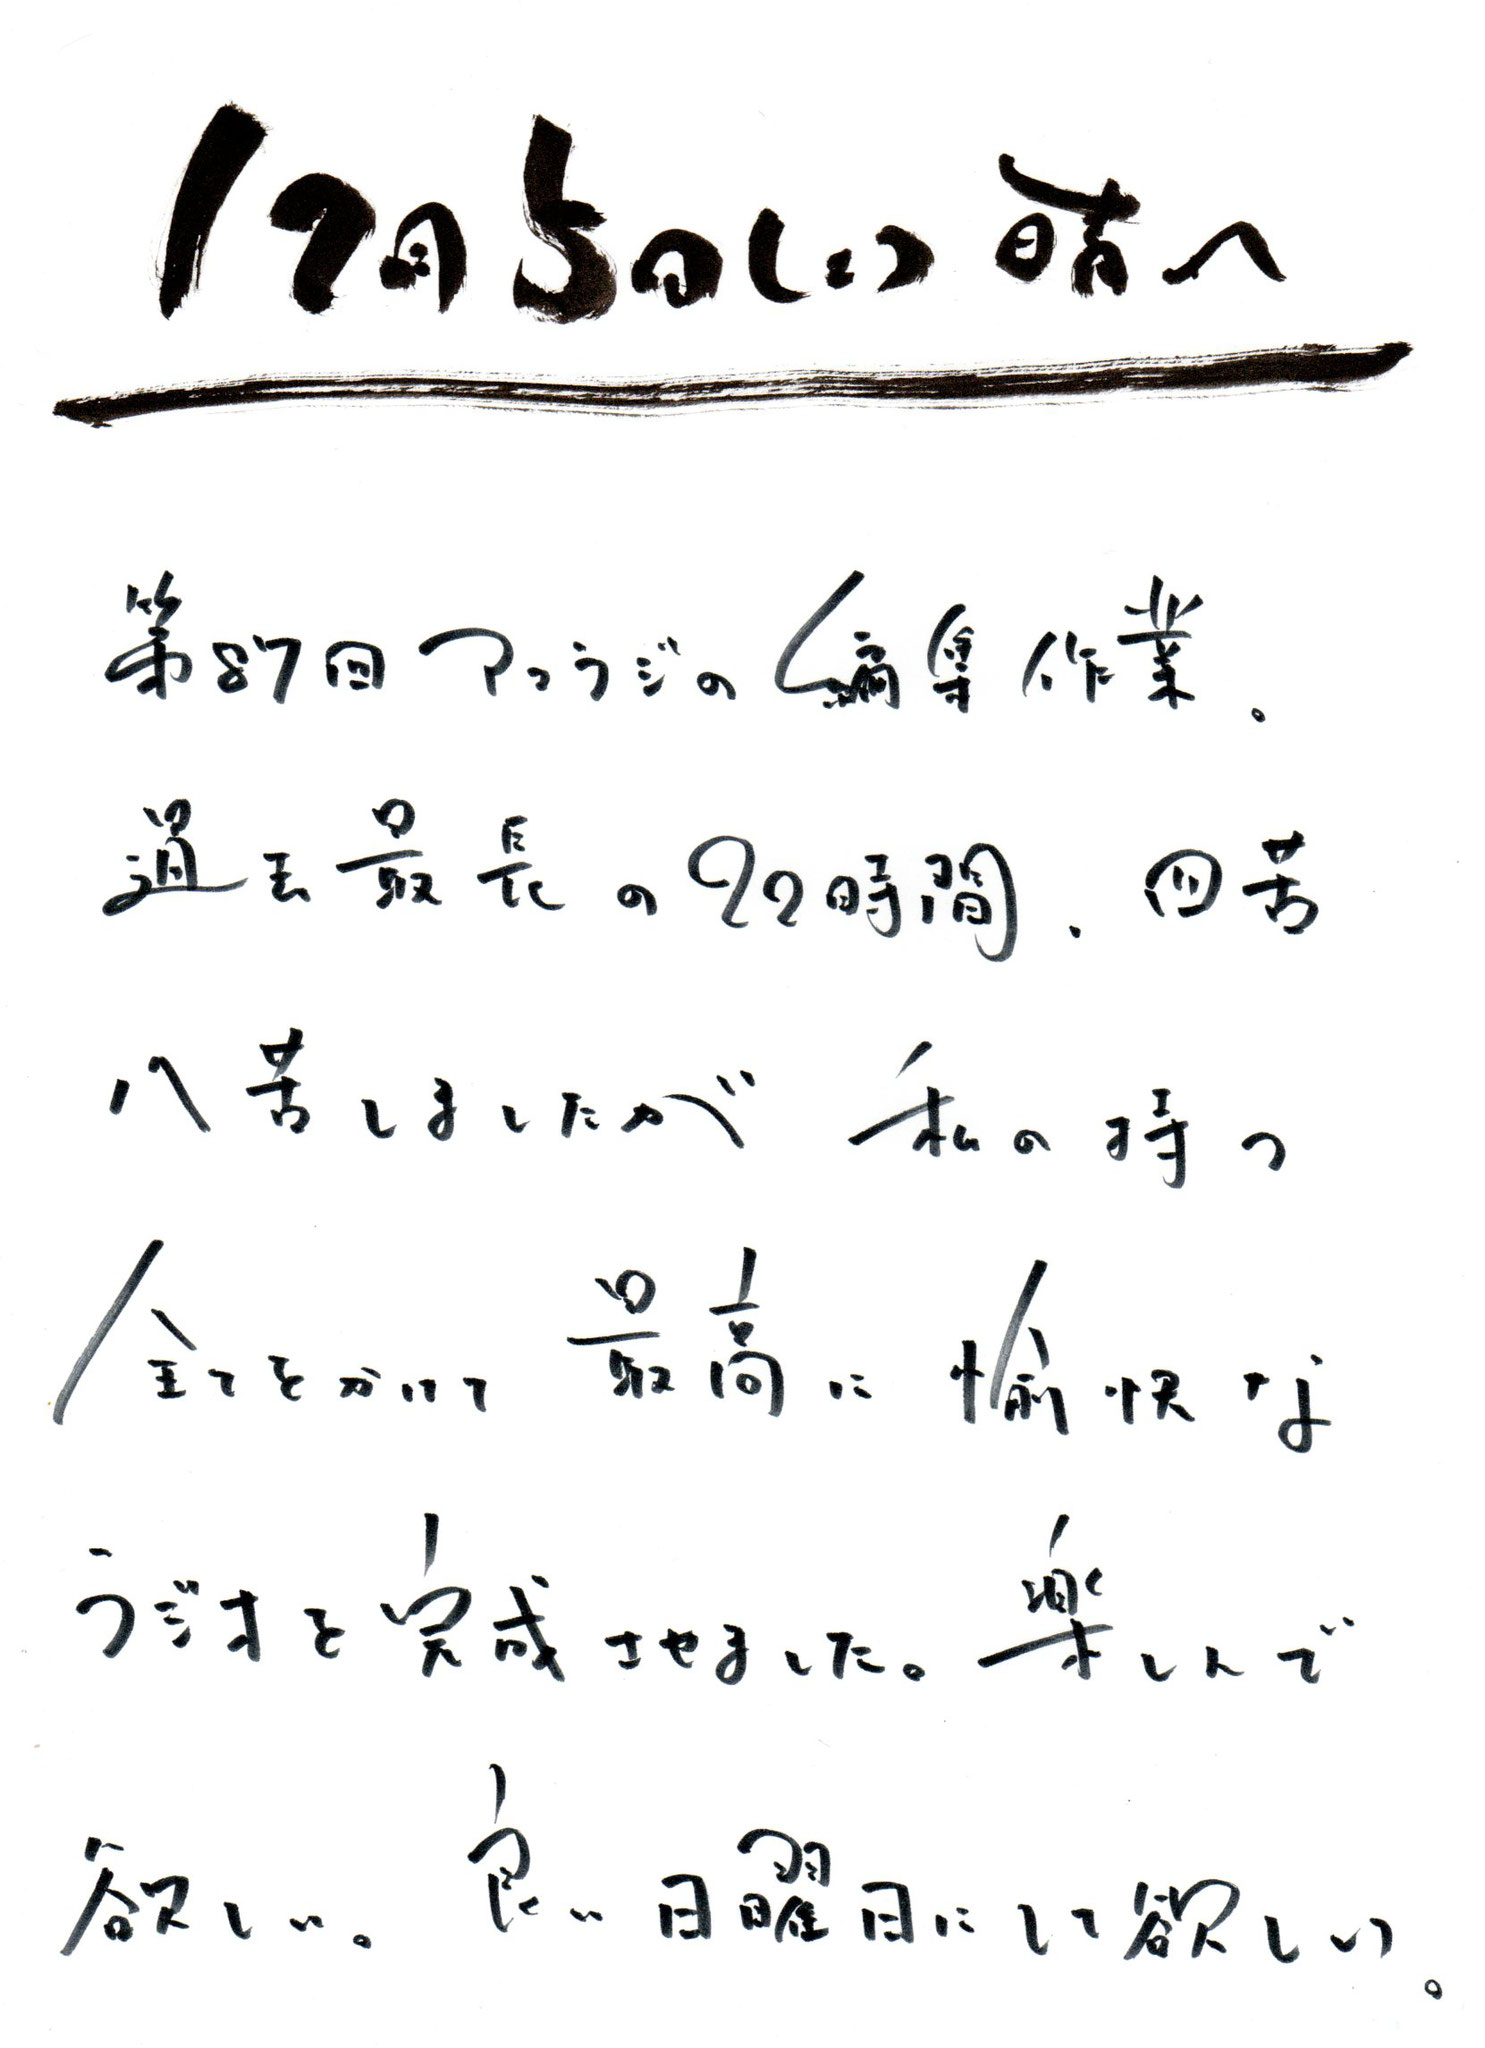 12月5日(土) 晴へ
第87回アコラジの編集作業。
過去最長の22時間、四苦
八苦しましたが 私の持つ
全てをかけて 最高に 愉快な
ラジオを完成させました。楽しんで
欲しい。良い日曜日にして欲しい。